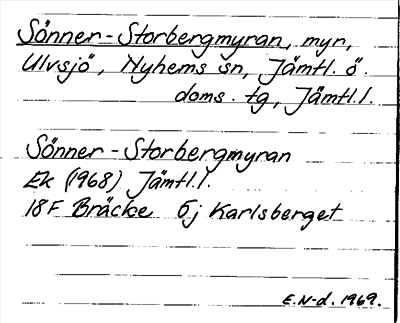 Sönner-Storbergmyran, myr,
Ulvsjö, Nyhems sn, Jämtl. ö.
doms. tg, Jämtl.l.
Sönner-Storbergmyran
Ek (1968) Jämtl.l.
18F Bräcke 6j Karlsberget
E.N-d. 1969.